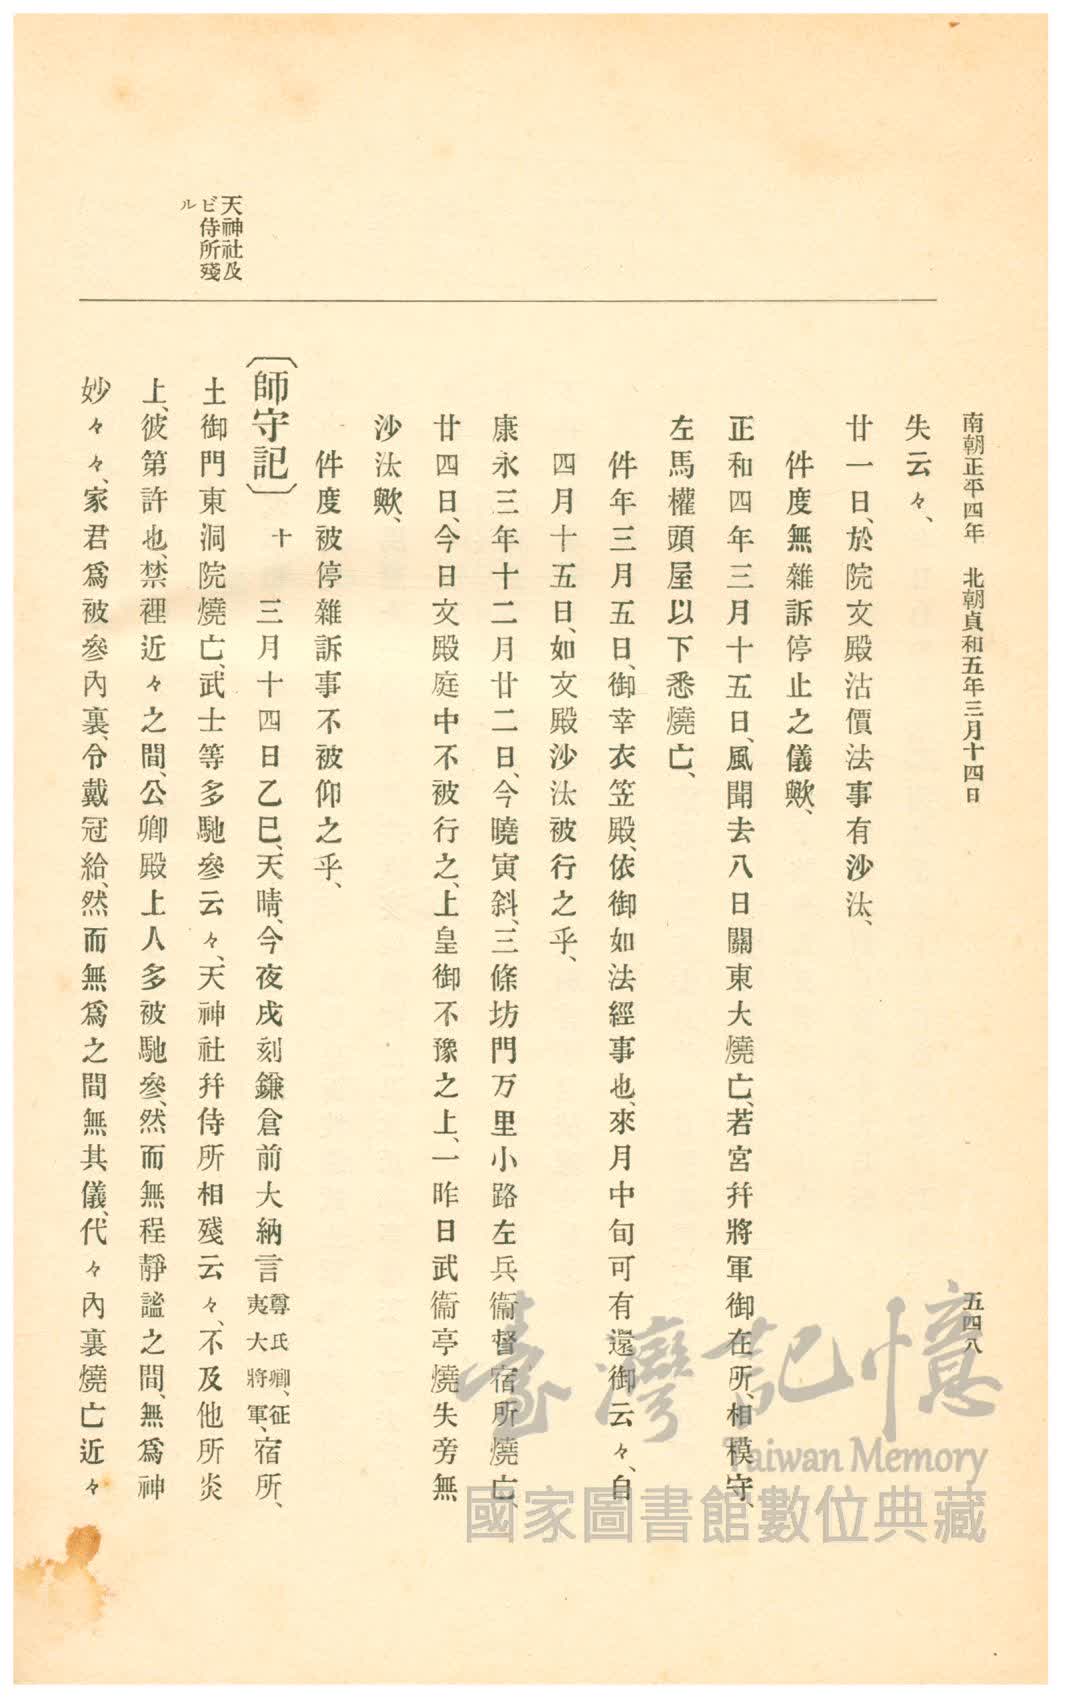 南朝正平四年　北朝貞和五年三月十四日
五四八
失云々、
廿一日、於院文殿沽價法事有沙汰、
件度無雜訴停止之儀歟、
正和四年三月十五日、風聞去八日關東大燒亡、若宮幷將軍御在所、相模守、
左馬權頭屋以下悉燒亡、
件年三月五日、御幸衣笠殿、依御如法經事也、來月中旬可有還御云々、自
四月十五日、如文殿沙汰被行之乎、
康永三年十二月廿二日、今曉寅斜、三條坊門万里小路左兵衞督宿所燒亡、
廿四日、今日文殿庭中不被行之、上皇御不豫之上、一昨日武衞亭燒失旁無
沙汰歟、
件度被停雜訴事不被仰之乎、
〔師守記〕十　三月十四日乙巳、天晴、今夜戌刻鎌倉前大納言尊氏卿、征夷大將軍、宿所、
土御門東洞院燒亡、武士等多馳參云々、天神社幷侍所相殘云々、不及他所炎
上、彼第許也、禁裡近々之間、公卿殿上人多被馳參、然而無程靜謐之間、無爲神
妙々々、家君爲被參內裏、令戴冠給、然而無爲之間無其儀、代々內裏燒亡近々
天神社及
ビ侍所殘
ル
臺灣記憶
Taiwan Memory
國家圖書館數位典藏